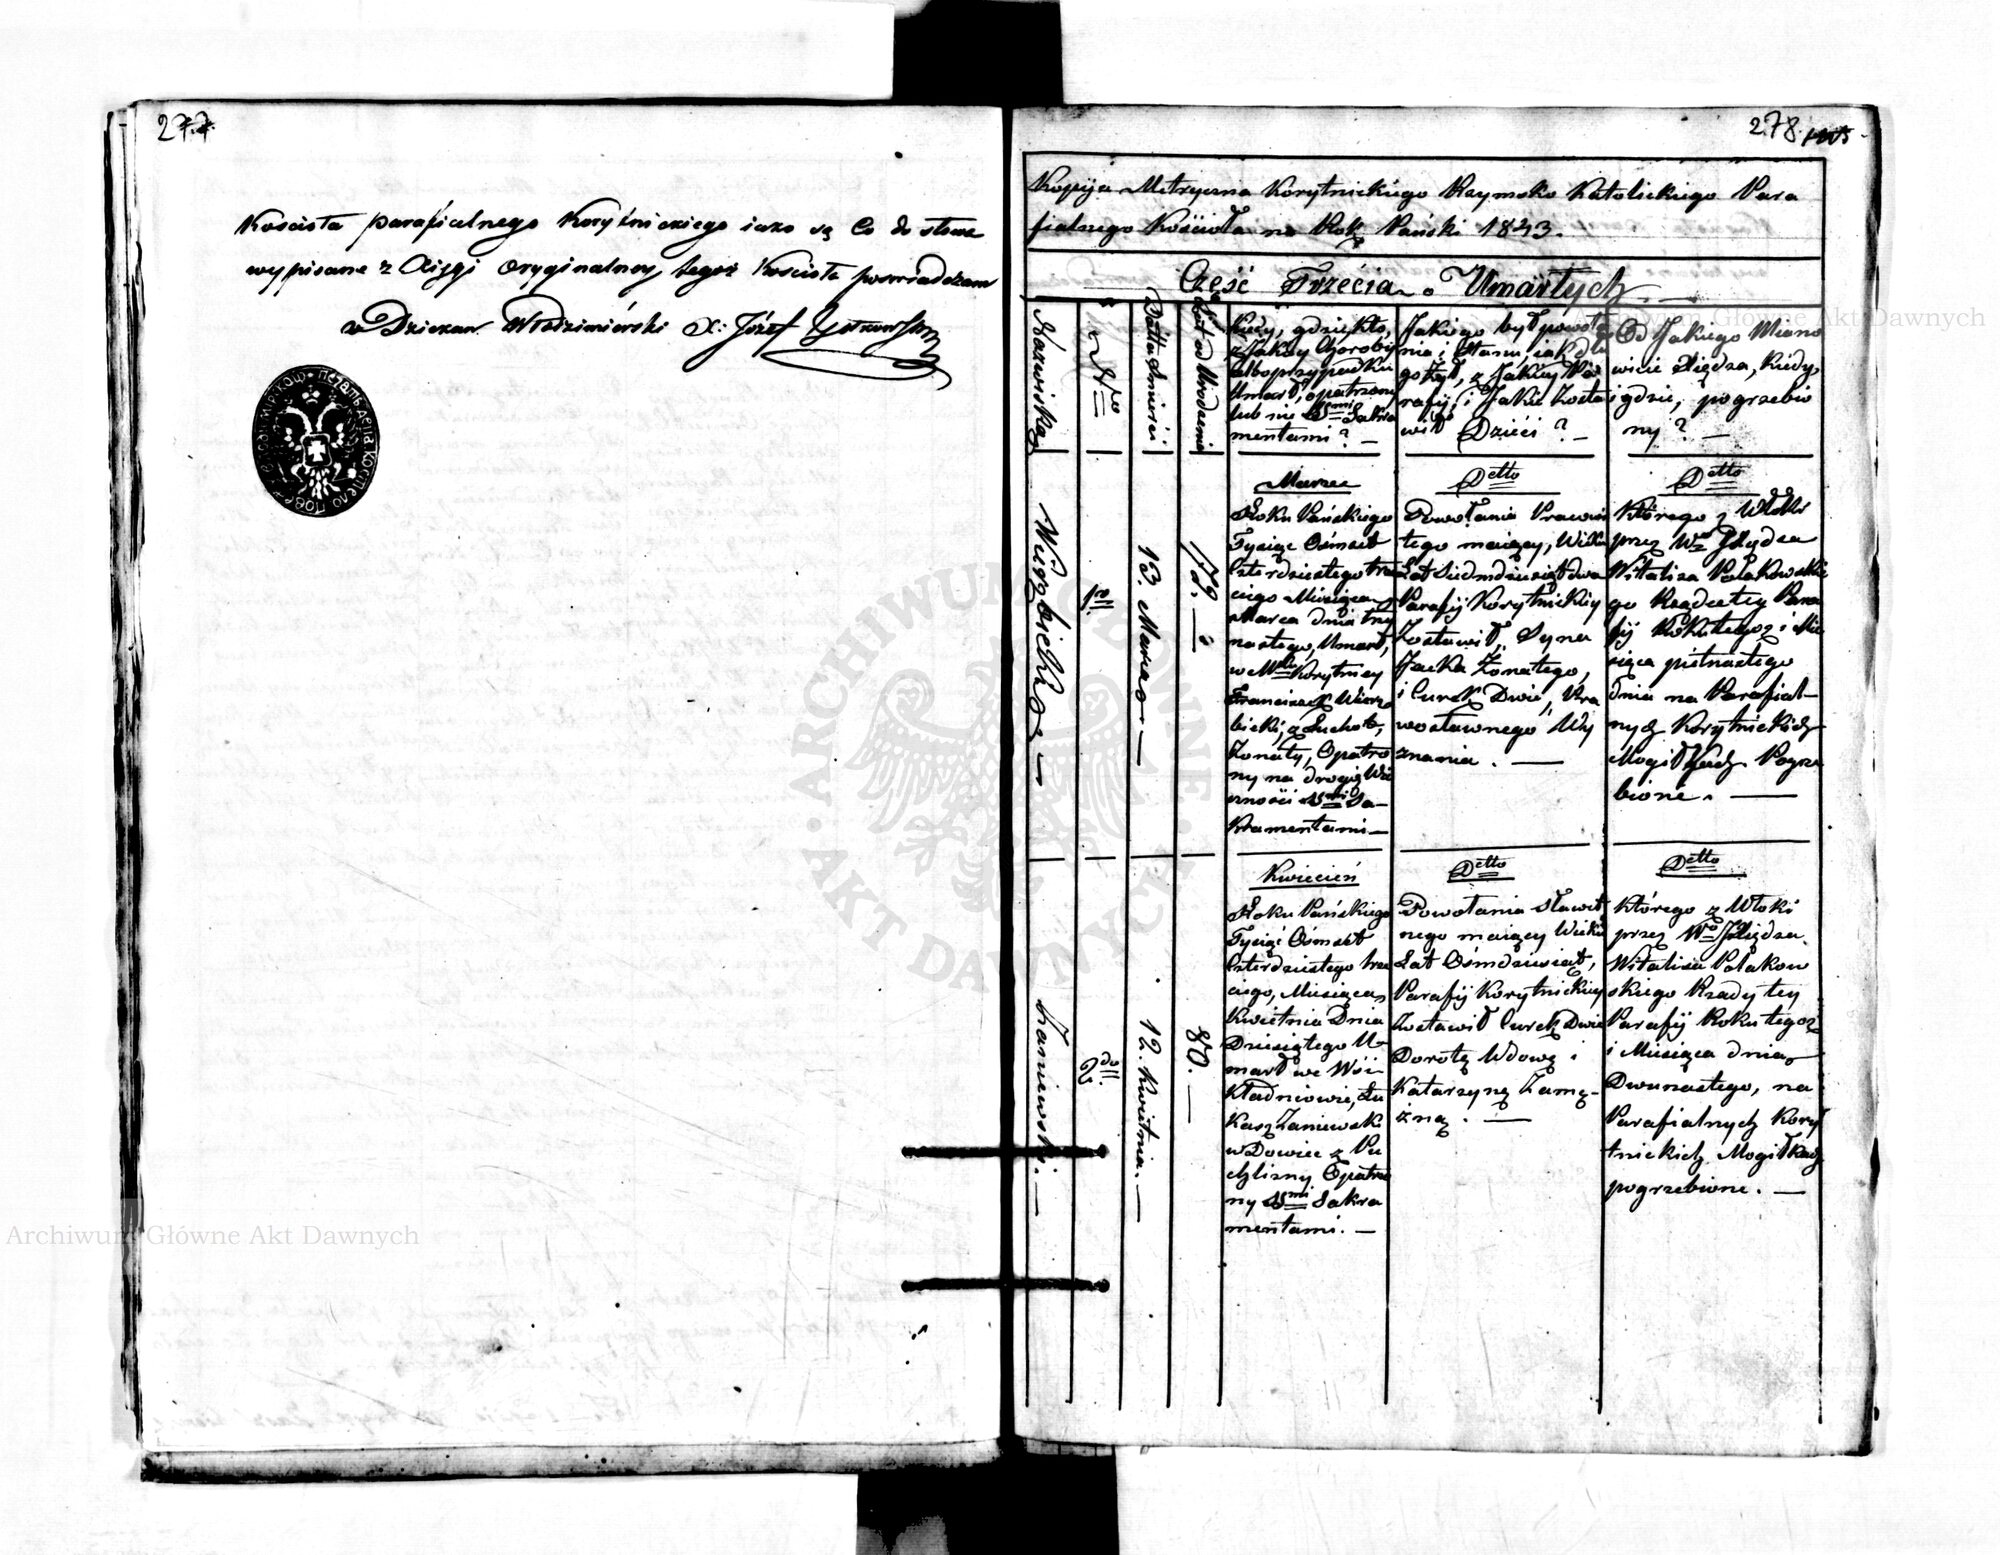 277.
Kościoła parafialnego Korytnickiego iako są Co do słowa
wypisane z Xięgi Oryginalney tegoż Kościoła poswiadczam
Dziekan Włodzimirski X: Józef
278.
Kopija Metryczna Korytnickiego Rzymsko Katolickiego Para
fialnego Kościoła na Rok Pański 1843.
Część Trzecia. Umarłych
Nazwiska
Nro
Data śmierci
Lat od Urodzenia
Kiedy, gdzie, kto,
z Jakiey Choroby
albo przypadku
Umarł, opatrzony
lub nie SSmi Sakra
mentami? —
Jakiego był powoła
nia i Stanu, jak dłu
go żył, z Jakiey Pa
rafij, i Jakie zosta
wił Dzieci? —
Od Jakiego Miano
wicie Xiędza, kiedy,
i gdzie, pogrzebio
ny? —
Wierzbicki
1mo
13. Marca —
72. —
Marzec
Roku Pańskiego
Tysiąc Ośmset
Czterdziestego trze
ciego Miesiąca
Marca dnia trzy
nastego, Umarł,
w Mku Korytnicy
Franciszek Wierz
bicki, z Suchot,
Żonaty, Opatrzo
ny na drogę Wie
czności SSmi Sa-
kramentami —
Detto
Powołania Pracowi
tego maiący, Wieku
Lat Siedmdziesiąt dwa
Parafij Korytnickiey
Zostawił, Syna
Jacka Żonatego,
i Curek Dwie, Pra
wosławnego Wy
znania. —
Detto
Którego z Włoki
przez Wo Xiędza
Witalisa Polakowskie
go Rządcę tey Para
fij Roku tegoż i Mie
siąca pietnastego
dnia na Parafial-
nych Korytnickich
Mogiłkach Pogrze
bione. —
Zaniewski. —
2do
12. Kwietnia. —
80. —
Kwiecień
Roku Pańskiego
Tysiąc Ośmset
Czterdziestego trze
ciego, Miesiąca
Kwietnia Dnia
Dziesiątego U-
marł we Wsi
Kładniowie, Łu
kasz Zaniewski
wDowiec z Pu
chliny Opatrzo
ny SSmi Sakra
mentami. —
Detto
Powołania Sławet
nego maiący Wieku
Lat Ośmdziesiąt,
Parafij Korytnickiey
Zostawił Curek Dwie
Dorotę Wdowę i
Katarzynę Zamę-
żną. —
Detto
Którego z Włoki
przez Wo Xiędza
Witalisa Polakow
skiego Rządcy tey
Parafij Roku tegoż
i Miesiąca dnia
Dwunastego, na
Parafialnych Kory
tnickich Mogiłkach
pogrzebione. —
Archiwum Główne Akt Dawnych
Archiwum Główne Akt Dawnych
ARCHIWUM GŁÓWNE · AKT DAWNYCH ·